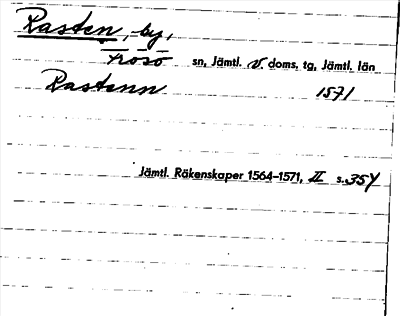 Rasten, by,
Frösö sn, Jämtl. v. doms. tg, Jämtl. län
Rastenn 1571
Jämtl. Räkenskaper 1564-1571, II s. 354